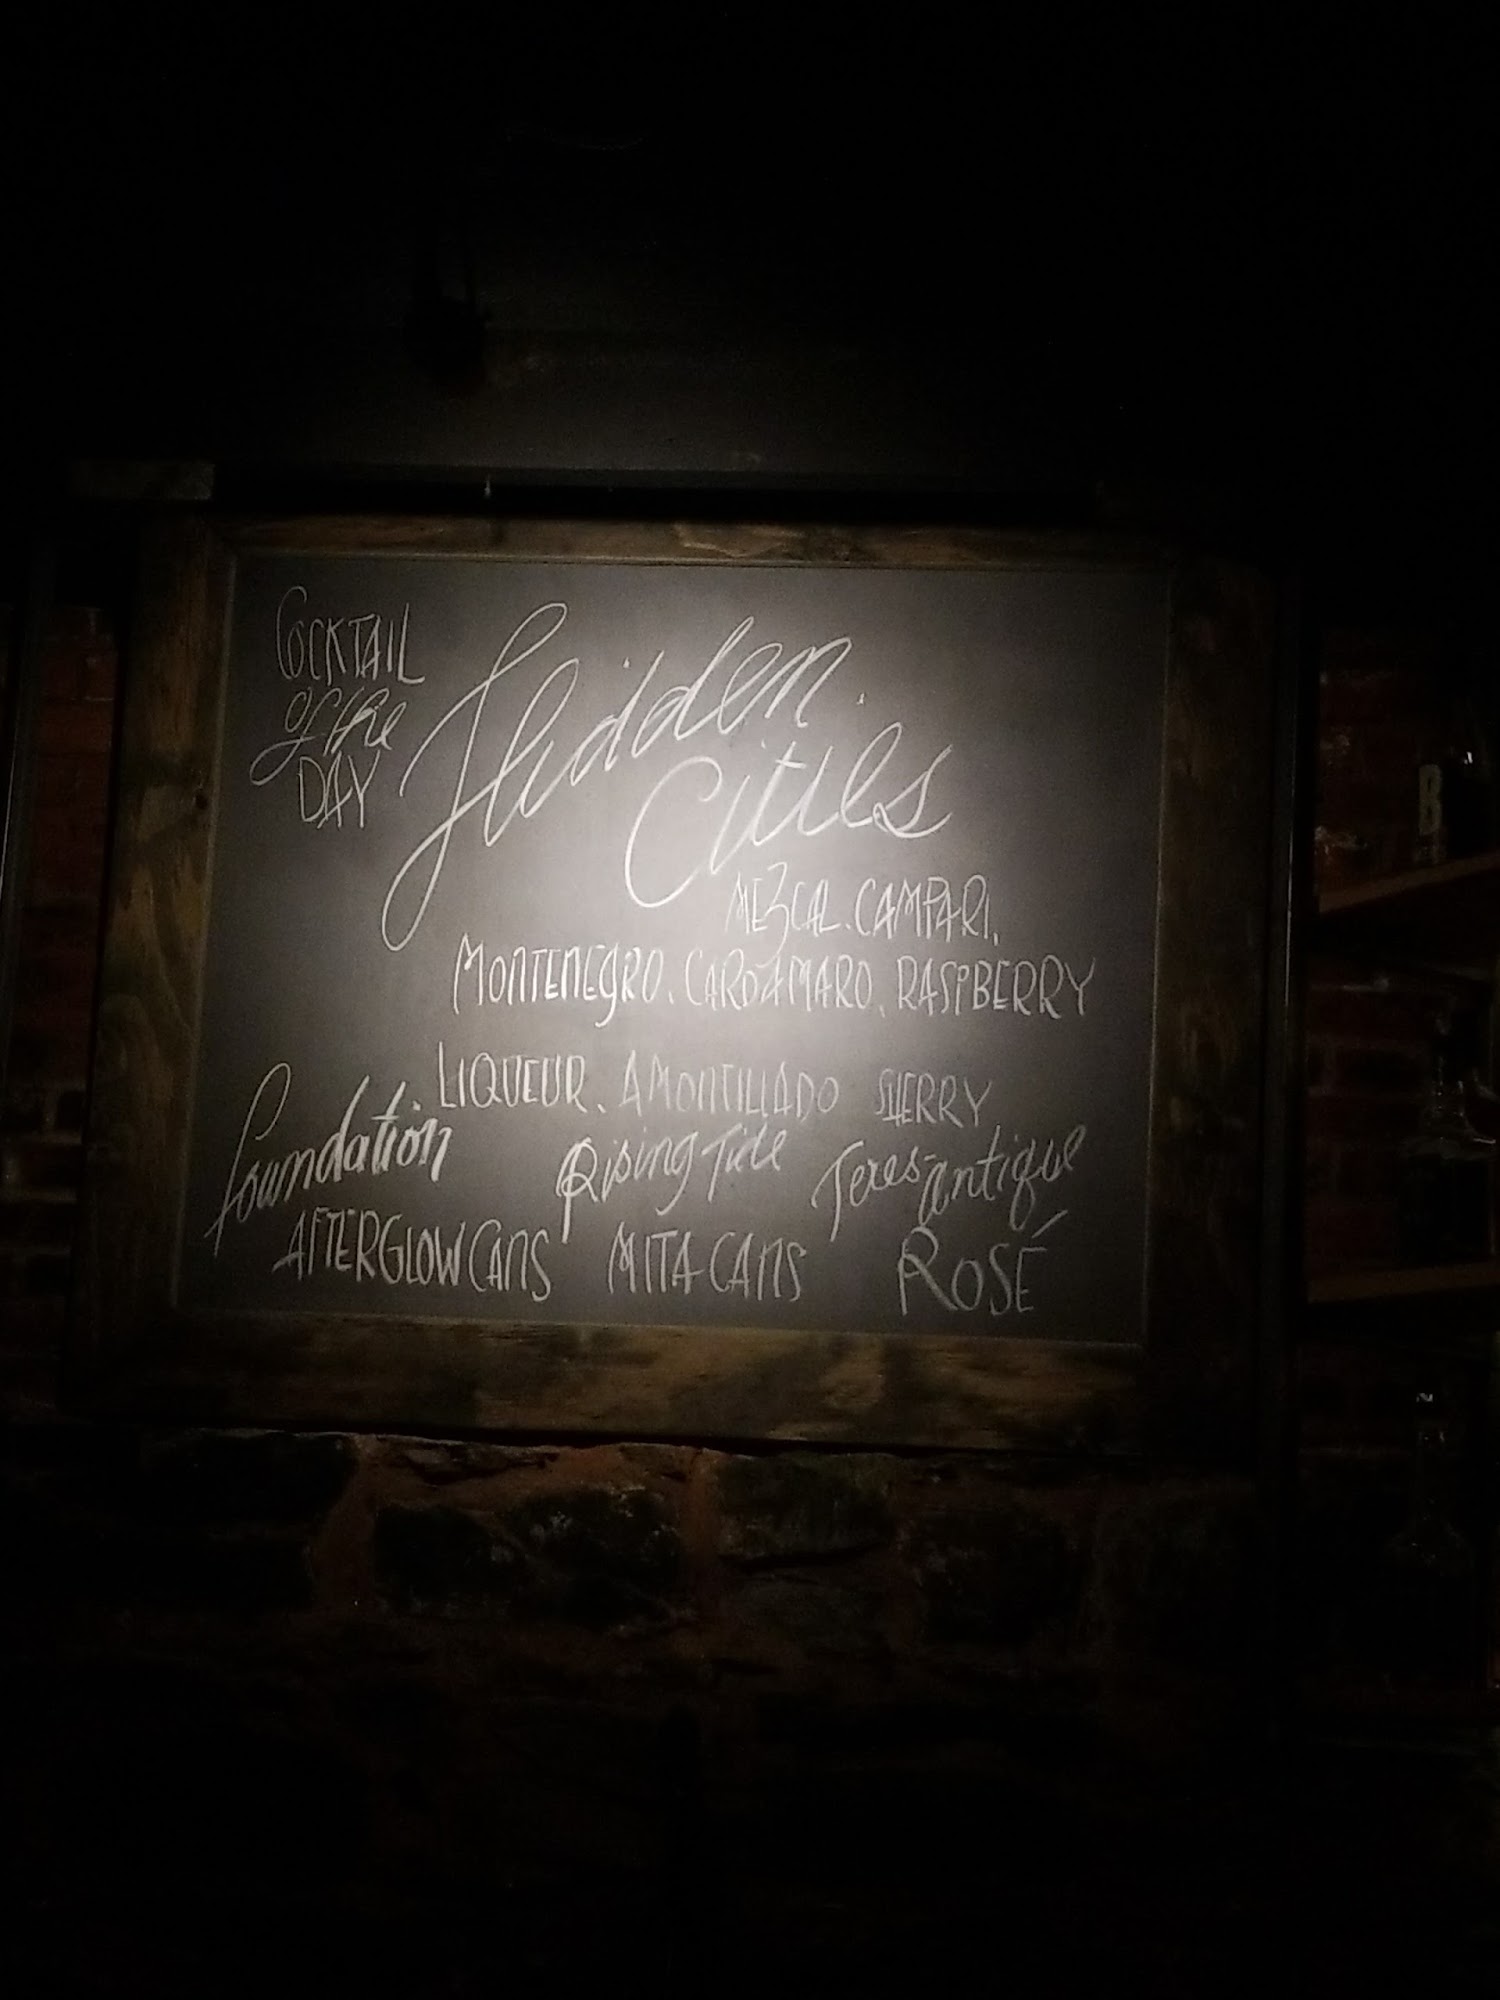 COCKTAIL
of the
DAY
Hidden
Cities
MEZCAL. CAMPARI.
MONTENEGRO. CARDAMARO. RASPBERRY
LIQUEUR. AMONTILLADO SHERRY
foundation Rising Tide Teres-antique
AFTERGLOW CANS MITA CANS ROSÉ
B